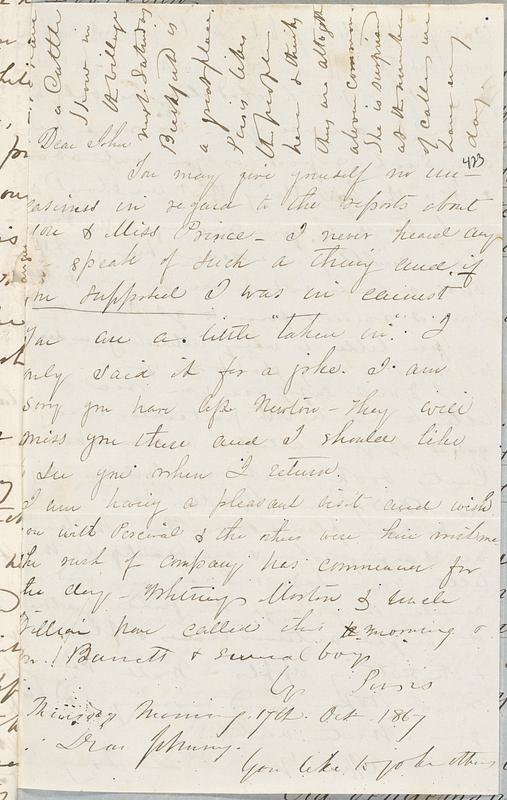 a Cattle
Show in
the village
next Saturday
is
a great place
likes
the people
here & thinks
they are altogether
above common
She is surprised
at the number
of callers we
have every
day
423
Dear John
You may give yourself no un-
easiness in regard to the reports about
you & Miss Prince - I never heard any
speak of such a thing and if
you supposed I was in earnest
You are a little "taken in". I
only said it for a joke. I am
sorry you have left Newton - They will
miss you there and I should like
to see you when I return
I am having a pleasant visit and wish
you with Percival & the others were here with me
The rush of company has commenced for
the day - Morton & Uncle
William have called this morning &
Mr. Barrett & several boys
17th Oct. 1867
Morning
Dear Johnny.
You like to joke others